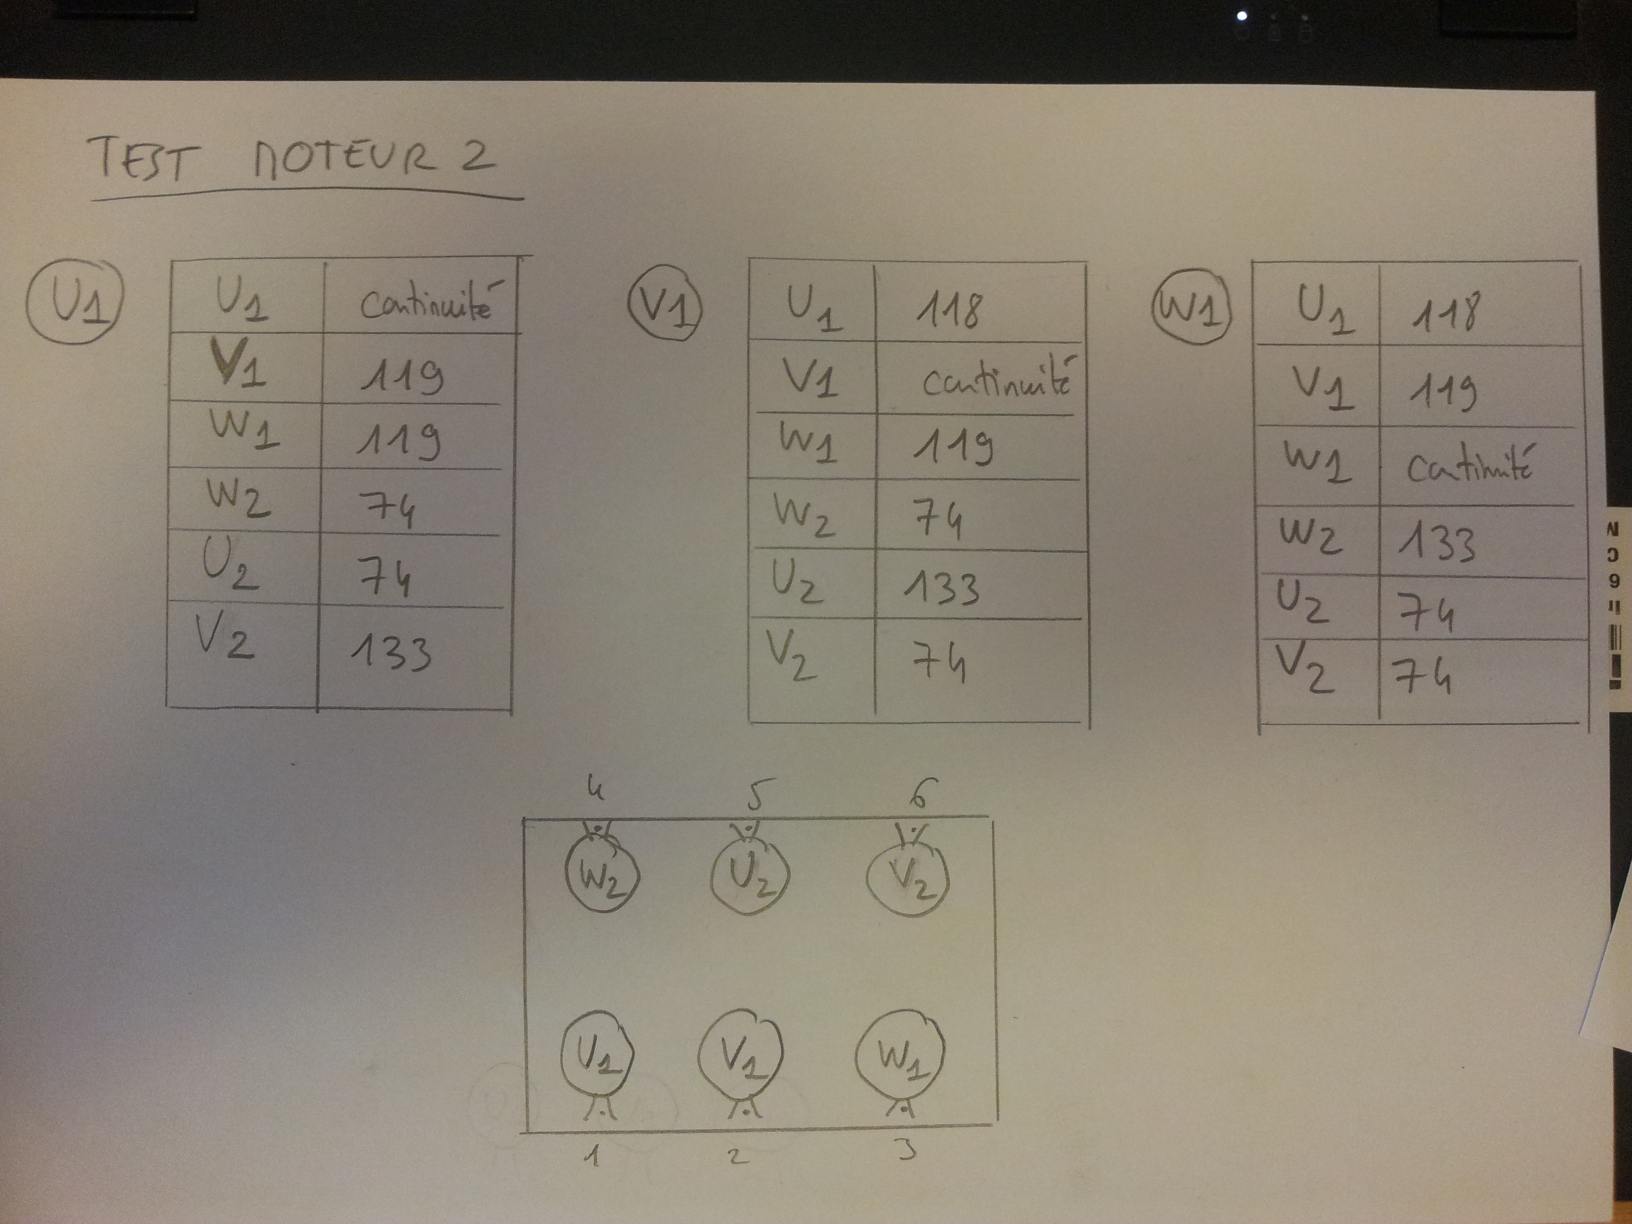 TEST MOTEUR 2
U1
U1 continuité
V1 119
W1 119
W2 74
U2 74
V2 133
V1
U1 118
V1 continuité
W1 119
W2 74
U2 133
V2 74
W1
U1 118
V1 119
W1 continuité
W2 133
U2 74
V2 74
4 5 6
W2 U2 V2
U1 V1 W1
1 2 3